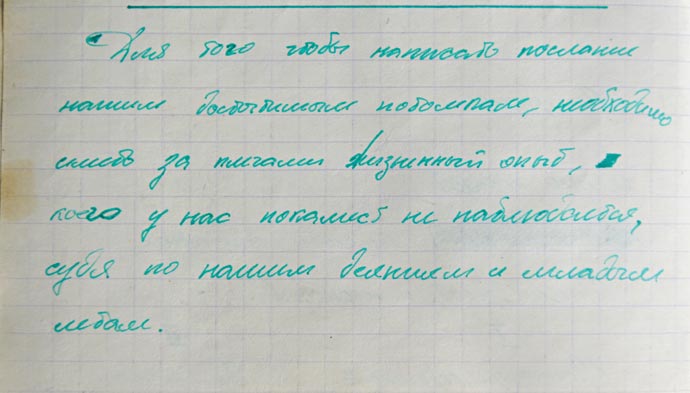 Для того чтобы написать послание
нашим достопимым потомкам, необходимо
иметь за плечами жизненный опыт,
коего у нас покамест не наблюдается,
судя по нашим деяниям и младым
летам.